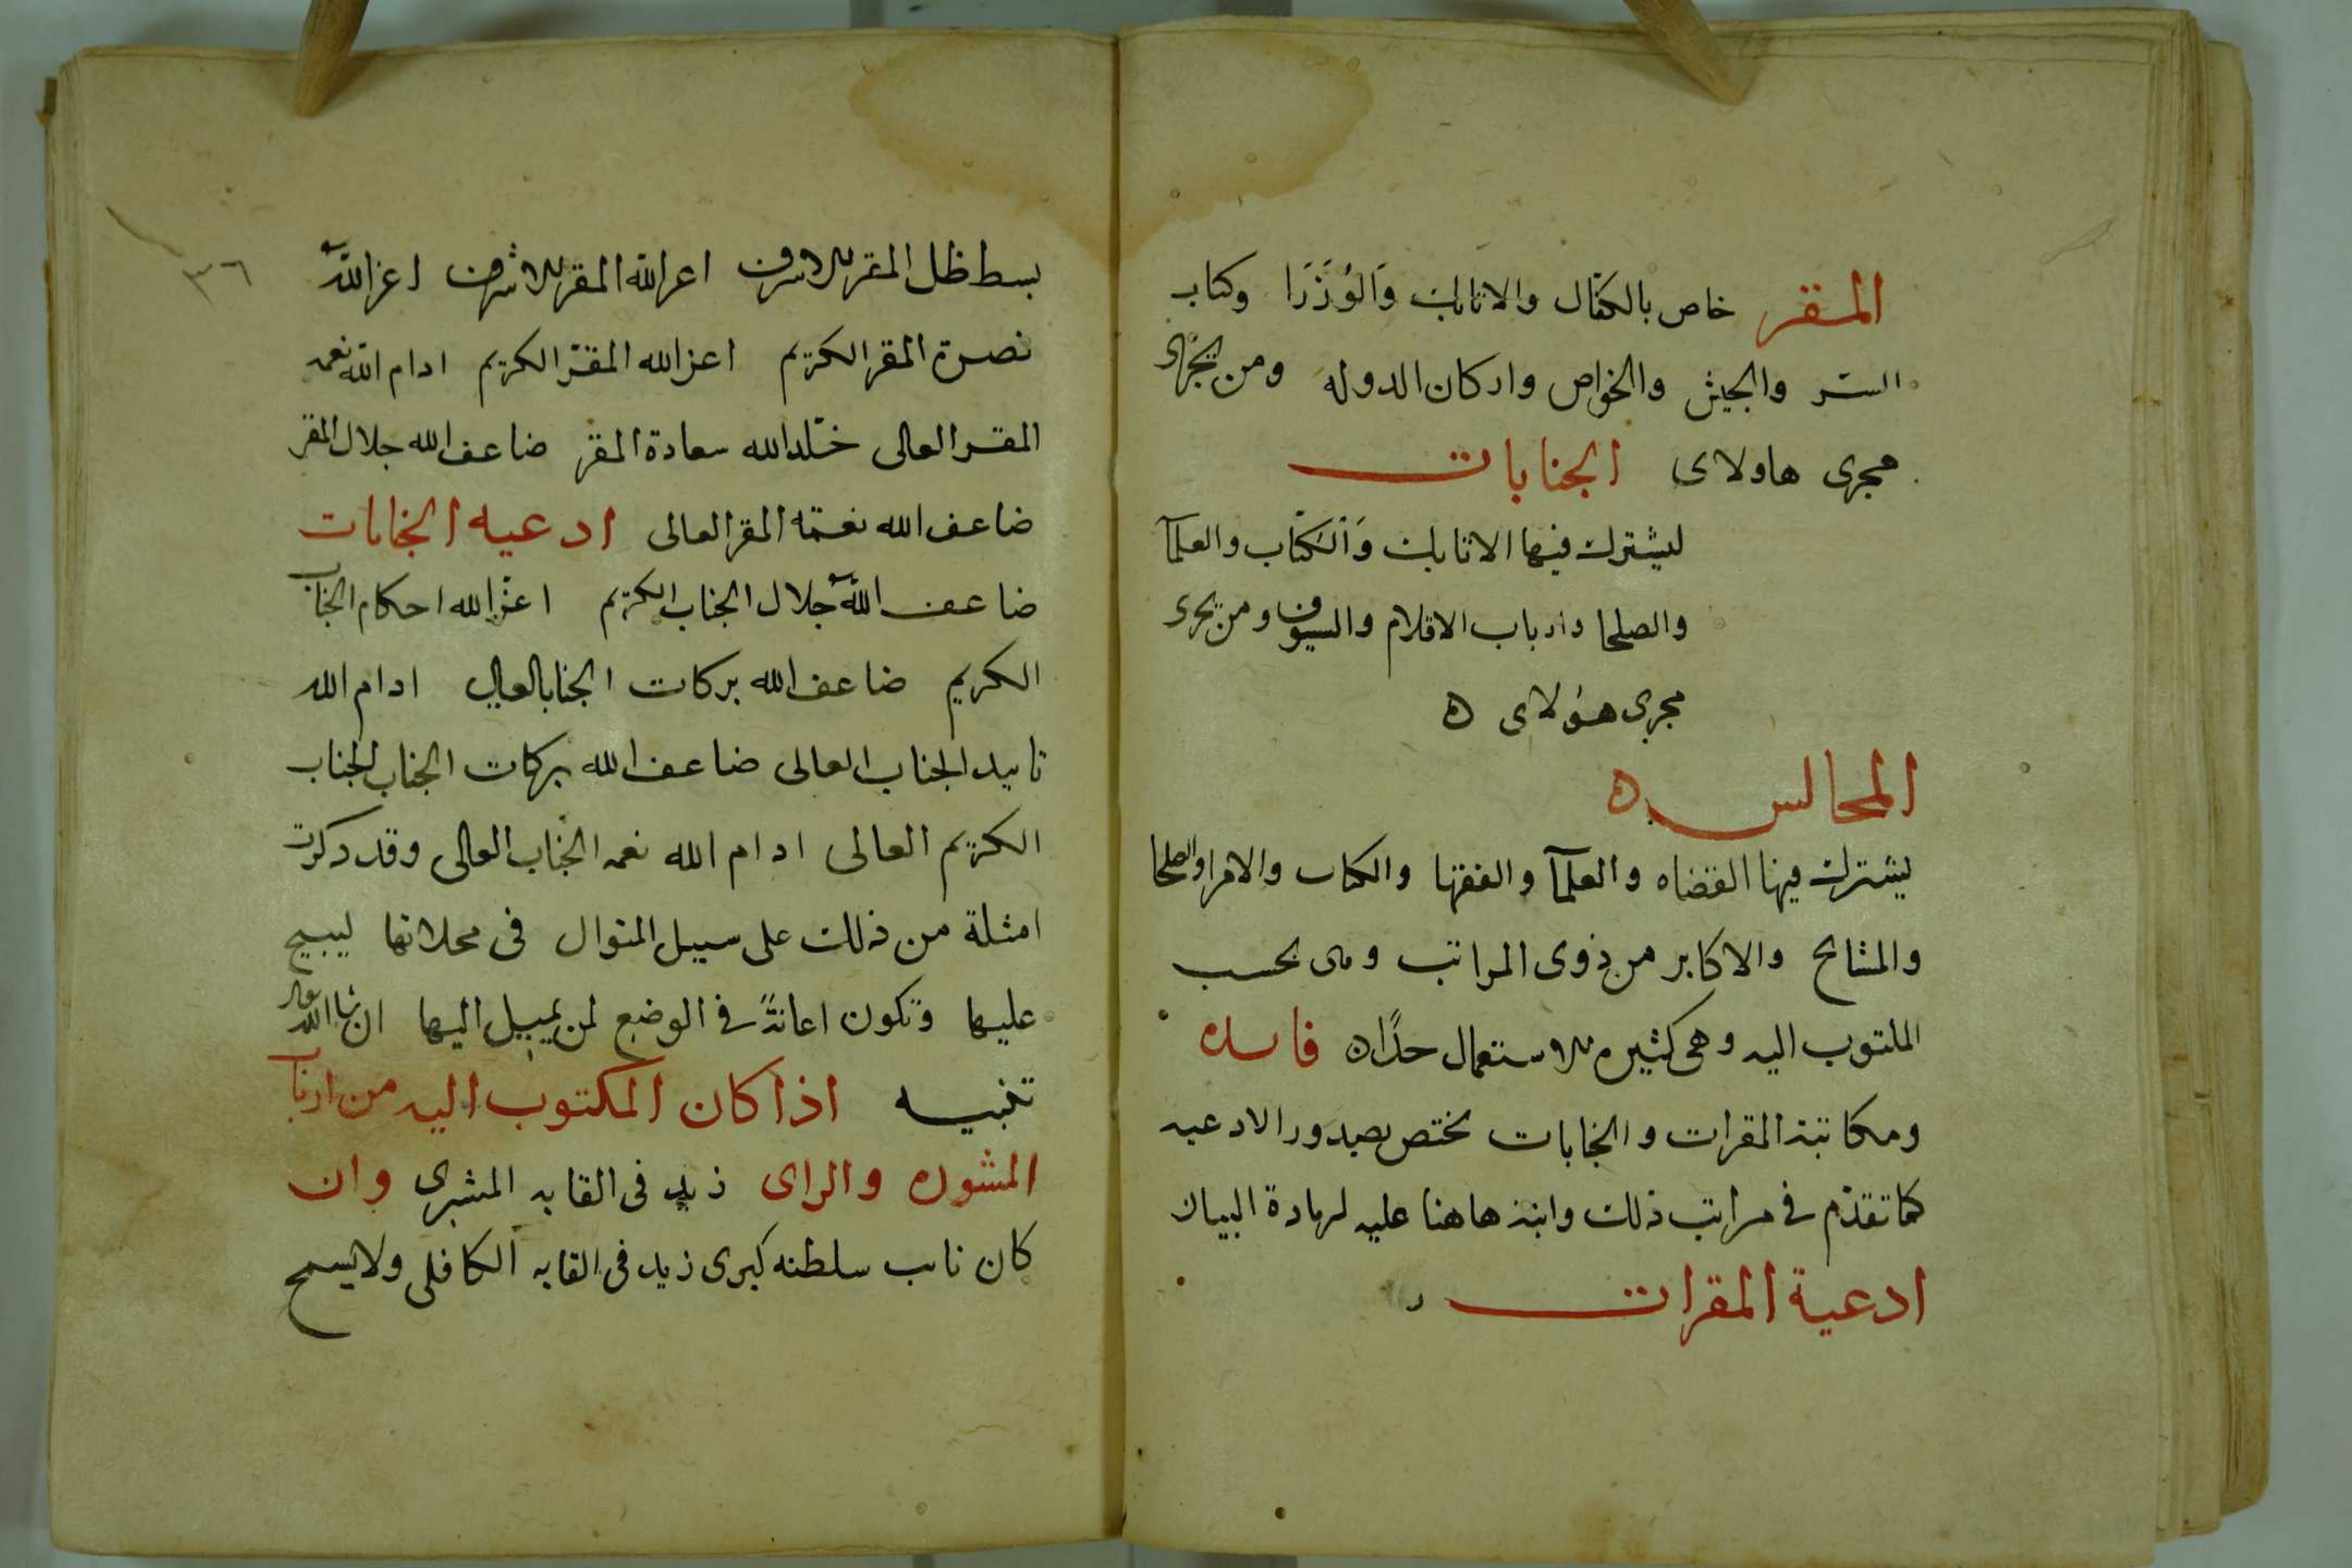 المقر خاص بالكفال والاتابك وَالوُزَرَا وكتاب
السر والجيش والخواص واركان الدوله ومن يجرى
مجرى هاولاى الجنابات
ليشترك فيها الاتابك وَالكُتاب والعلمآ
والصلحا وارباب الاقلام والسيوف ومن يجرى
مجرى هؤلاى ه
المجالس ه
يشترك فيها القضاه والعلمآ والفقها والكتاب والامرا والصلحا
والمشايخ والاكابر من ذوى المراتب وهى بحسب
المكتوب اليه وهى كثيره للاستعمال جدًا ه فايده
ومكاتبة المقرات والجنابات تختص بصدور الادعيه
كما تقدّم في مراتب ذلك وانبه هاهنا عليه لزيادة البيان
ادعية المقرات
٣٦
بسط ظل المقر الاشرف اعز الله المقر الاشرف اعز الله
نصرة المقر الكريم اعز الله المقر الكريم ادام الله نعمه
المقر العالى خلد الله سعادة المقر ضاعف الله جلال المقر
ضاعف الله نعمة المقر العالى ادعيه الجنابات
ضاعف الله جلال الجناب الكريم اعز الله احكام الجناب
الكريم ضاعف الله بركات الجناب العالي ادام الله
تاييد الجناب العالى ضاعف الله بركات الجناب الجناب
الكريم العالى ادام الله نعمه الجناب العالى وقد ذكرت
امثلة من ذلك على سبيل المنوال في محلاتها لينسج
عليها وتكون اعانةً في الوضع لمن يميل اليها ان شا الله تعالى
تنبيه اذا كان المكتوب اليه من ارباب
المشوره والراى زيد في القابه المشيرى وان
كان نايب سلطنه كبرى زيد في القابه الكافلى ولا يسمح